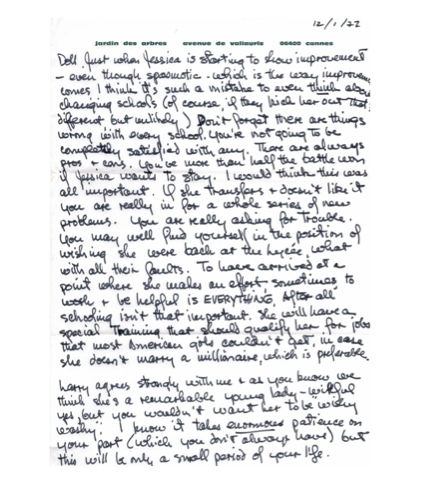 12/1/72
jardin des arbres avenue de vallauris 06400 cannes
Doll. Just when Jessica is starting to show improvement
– even though spasmotic – which is the way improvement
comes I think it's such a mistake to even think about
changing schools (of course, if they kick her out that's
different but unlikely) Don't forget there are things
wrong with every school. You're not going to be
completely satisfied with any. There are always
pros + cons. You've more than half the battle won
if Jessica wants to stay. I would think this was
all important. If she transfers + doesn't like it
you are really in for a whole series of new
problems. You are really asking for trouble.
You may well find yourself in the position of
wishing she were back at the lycée, what
with all their faults. To have arrived at a
point where she makes an effort, sometimes to
work + be helpful is EVERYTHING. After all
schooling isn't that important. She will have a
special training that should qualify her for jobs
that most American girls couldn't get, in case
she doesn't marry a millionaire, which is preferable.
Larry agrees strongly with me + as you know we
think she's a remarkable young lady – willful
yes, but you wouldn't want her to be wishy
washy! I know it takes enormous patience on
your part (which you don't always have) but
this will be only a small period of your life.